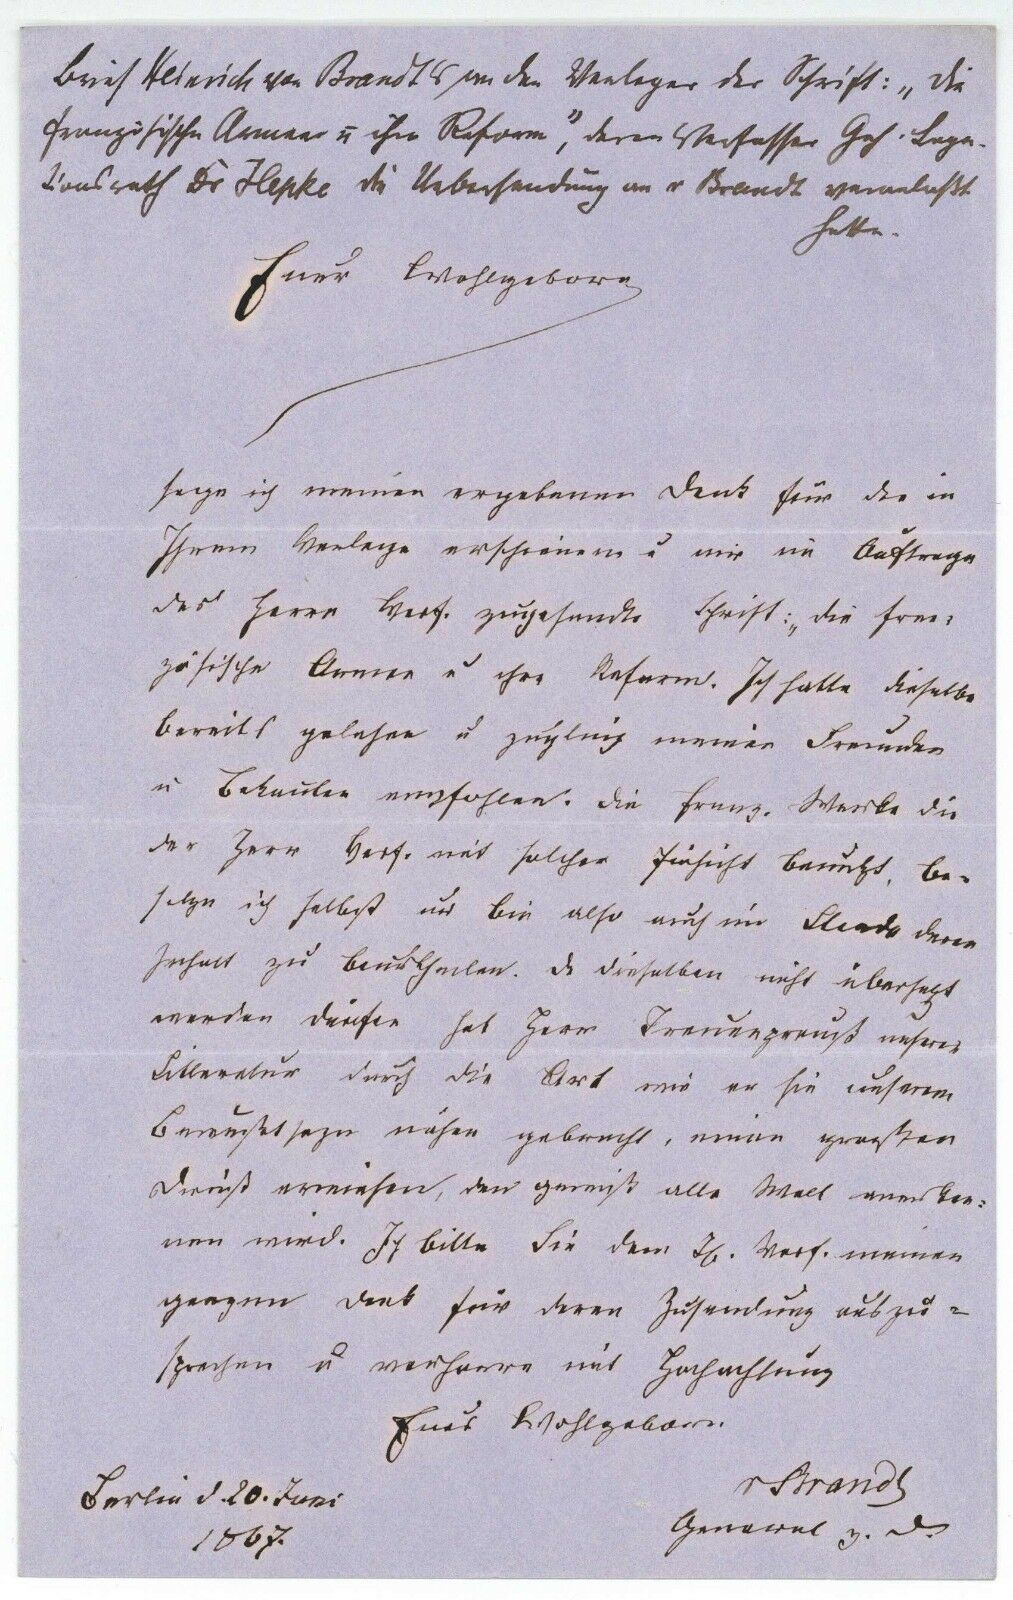 Brief Heinrich von Brandt's an den Verleger der Schrift: „Die
französische Armee u ihre Reform", deren Verfasser Geh. Lega-
tionsrath Dr Hepke die Uebersendung an v Brandt veranlaßt
hatte.
Euer Wohlgeboren
sage ich meinen ergebenen Dank für die in
Ihrem Verlage erschienene u mir im Auftrage
des Herrn Verf. zugesandte Schrift: „die fran-
zösische Armee u ihre Reform. Ich hatte dieselbe
bereits gelesen u zugleich meinen Freunden
u Bekannten empfohlen. Die franz. Werke die
der Herr Verf. mit solcher Einsicht benutzt, be-
sitze ich selbst und bin also auch im Stande deren
Inhalt zu beurtheilen. Da dieselben nicht übersetzt
werden dürfen hat Herr unserer
Litteratur durch die Art wie er sie unserem
Bewußtseyn näher gebracht, einen großen
Dienst erwiesen, den gewiß alle Welt anerken-
nen wird. Ich bitte Sie dem H. Verf. meinen
ganzen Dank für deren Zusendung auszu-
sprechen u verharre mit Hochachtung
Euer Wohlgeboren
v Brandt
Berlin d. 20. Juni
General z. D.
1867.